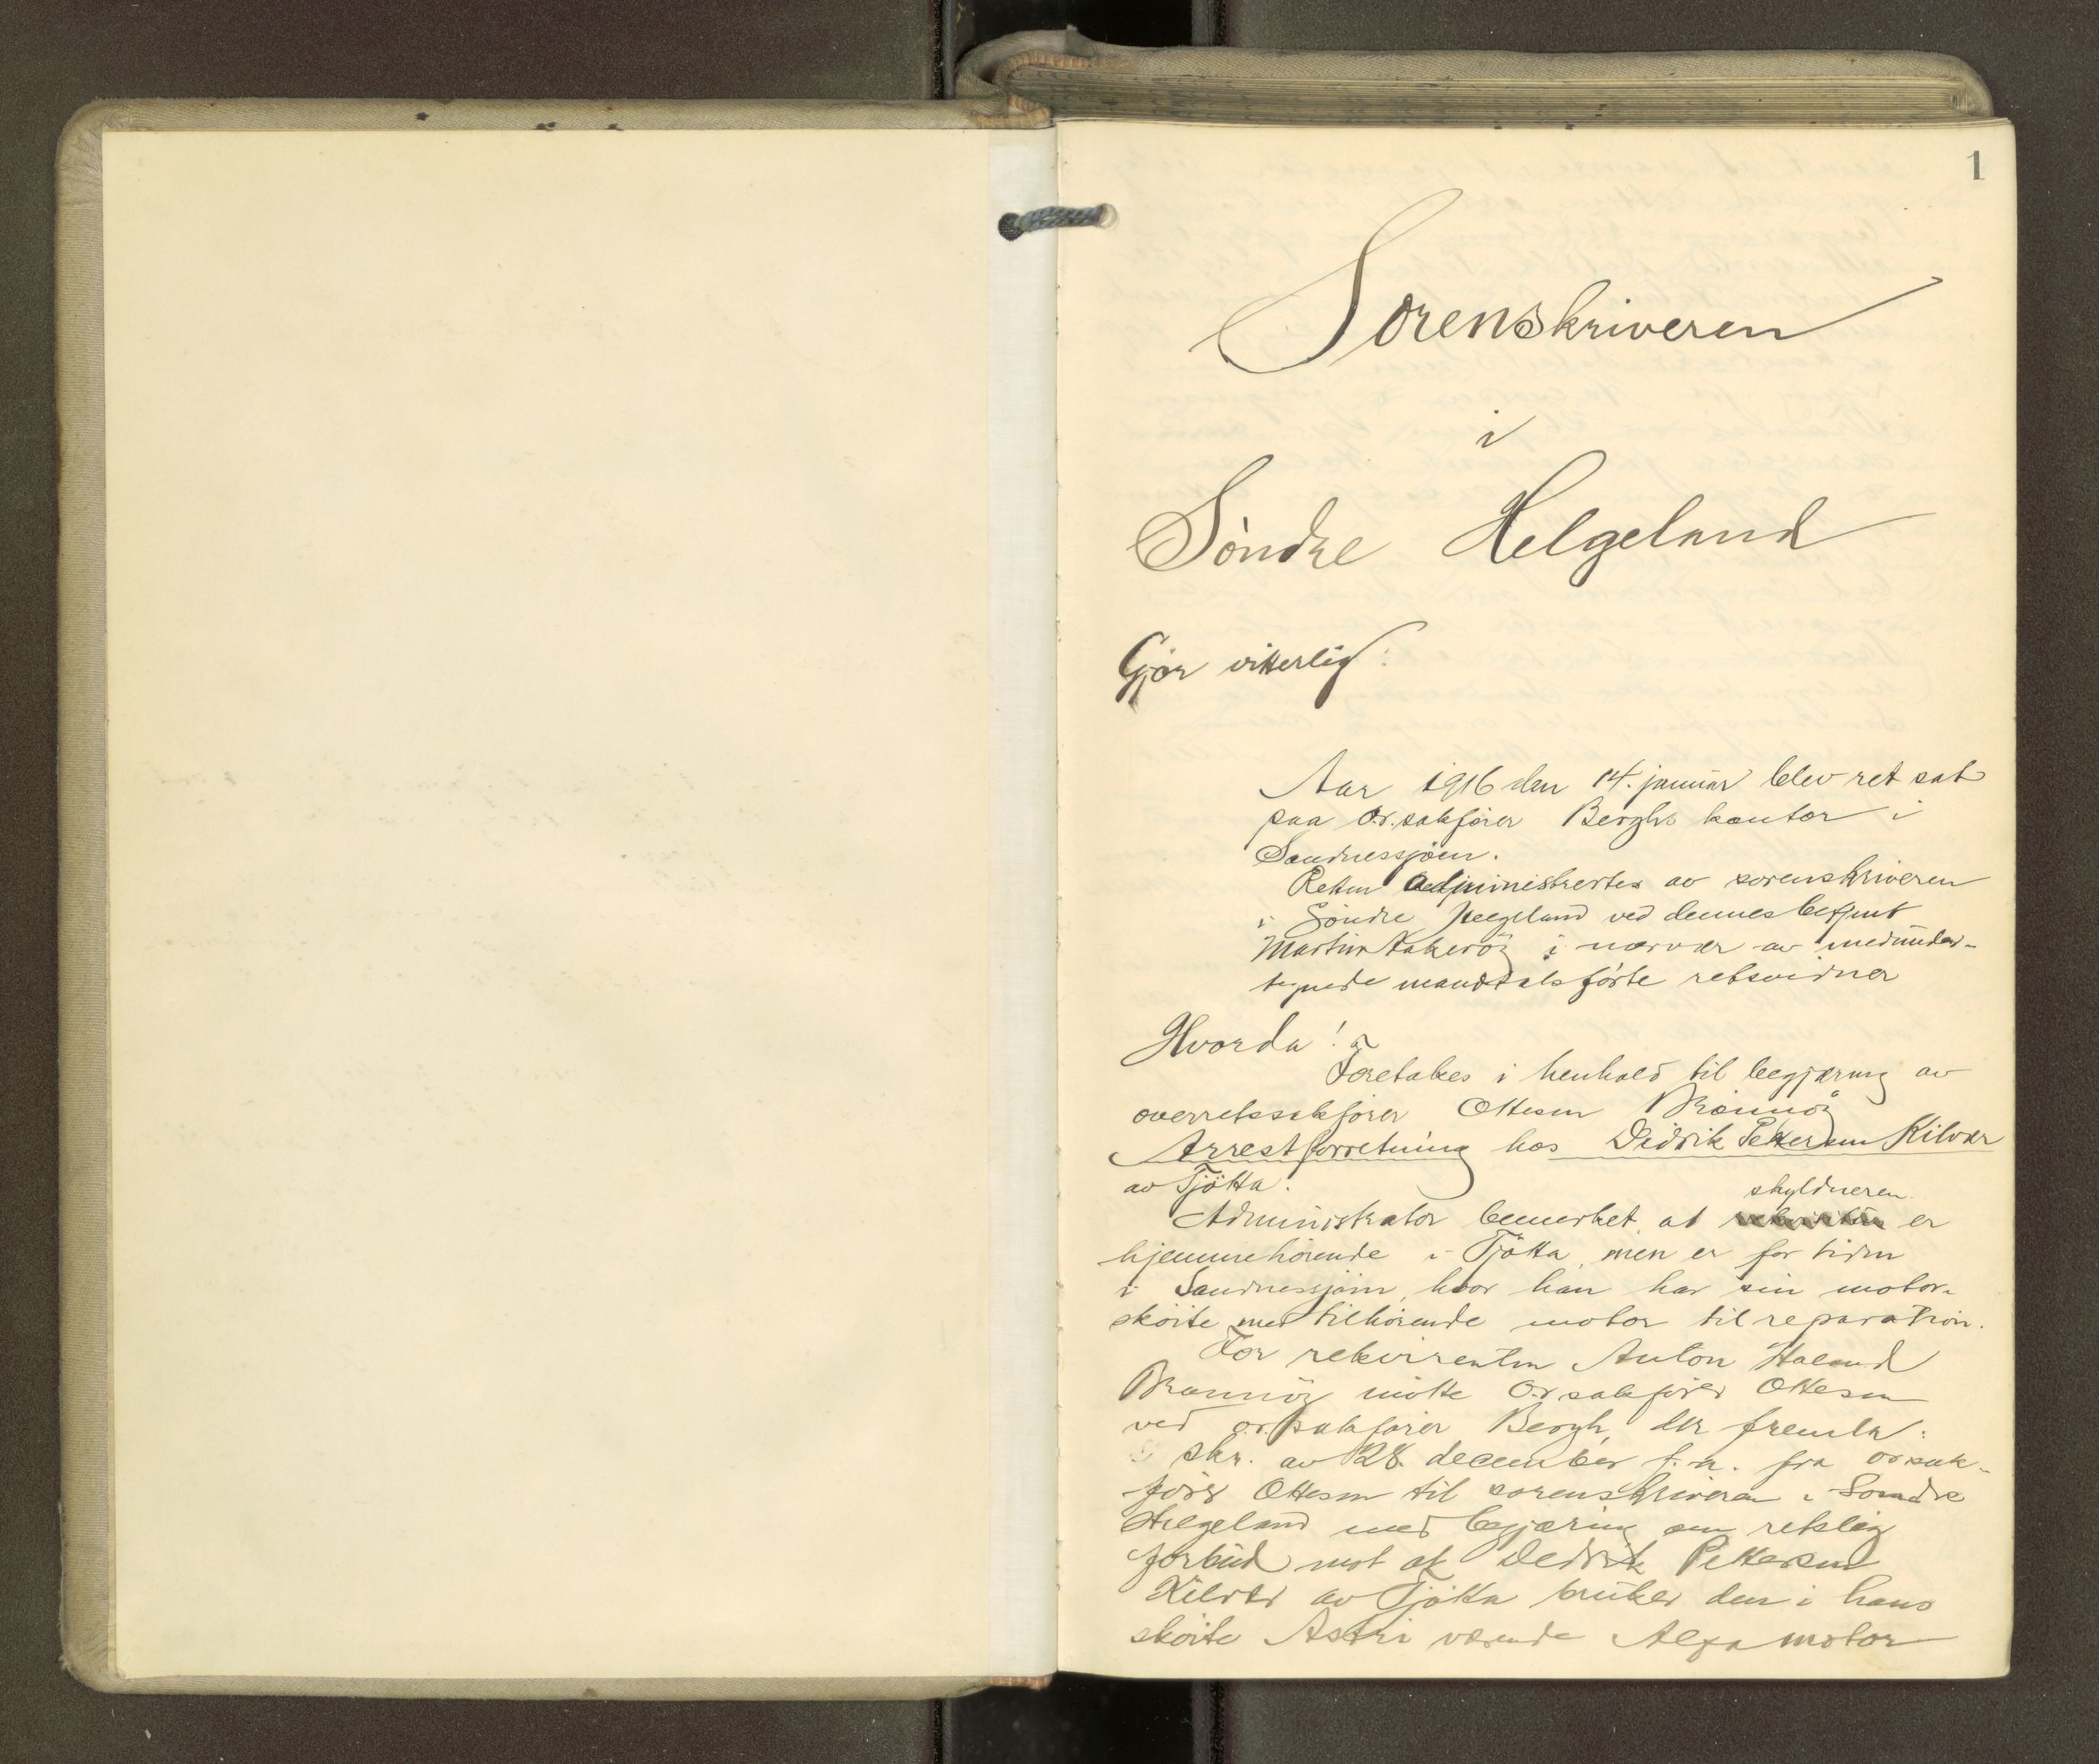 1
Sorenskriveren
i
Söndre Helgeland
Gjör vitterlig:
Aar 1916 den 14. januar blev ret sat
paa o.r.sakförer Berghs kontor i
Sandnessjöen.
Retten administrertes av sorenskriveren
i Söndre Helgeland ved dennes befuldm.
Martin Aakeröi i nærvær av medunder-
tegnede mandtalsförte retsvidner
Hvorda!
Foretakes i henhold til begjæring av
overretssakförer Ottesen Brönnöi
Arrestforretning hos Didrik Pettersen Kilvær
av Tjötta.
skyldneren
Administrator bemerket at er
hjemmehörende i Tjötta, men er for tiden
i Sandnessjöen, hvor han har sin motor-
sköite med tilhörende motor til reparation.
For rekvirenten Anton
Brönnöi mötte O.r.sakförer Ottesen
ved o.r.sakförer Bergh, der fremla:
skr. av 28. december f.a. fra orsak-
förer Ottesen til sorenskriveren i Söndre
Helgeland med begjæring om retslig
forbud mot at Didrik Pettersen
Kilvær av Tjötta bruker den i hans
sköite Astri værende Alfa motor